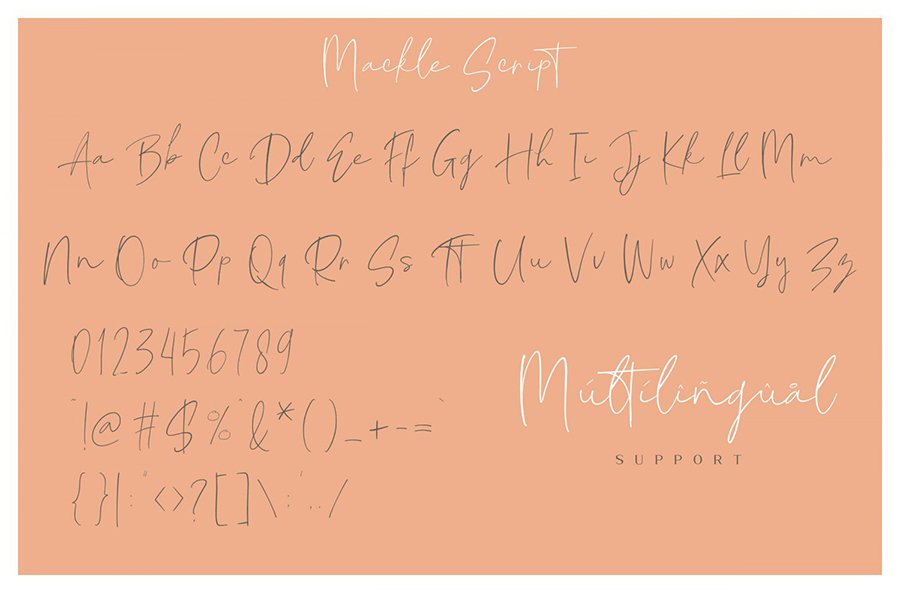 Mackle Script
Aa Bb Cc Dd Ee Ff Gg Hh Ii Jj Kk Ll Mm
Nn Oo Pp Qq Rr Ss Tt Uu Vv Ww Xx Yy Zz
0123456789
~!@#$%^&*()_+-=`
{}|:"<>?[]\;',./
Múltílîñgûål
SUPPORT